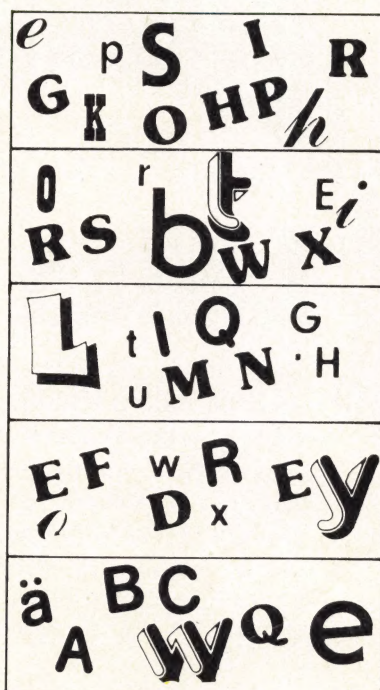 e p S I R
G K O H P h
O r b t E i
R S W X
L t I Q G
U M N H
E F w R E y
e D x
ä B C Q e
A W